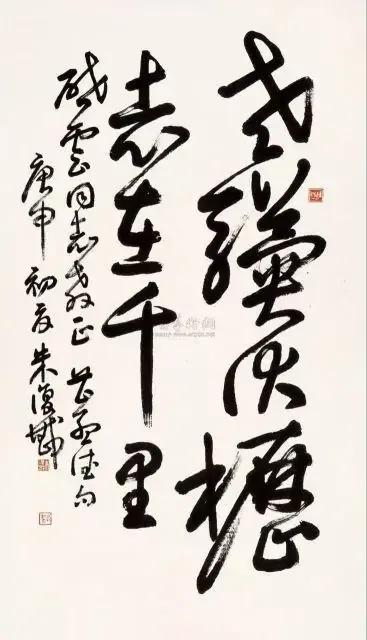 老驥伏櫪
志在千里
雲同志教正 曹孟德句
庚申初夏朱復戡